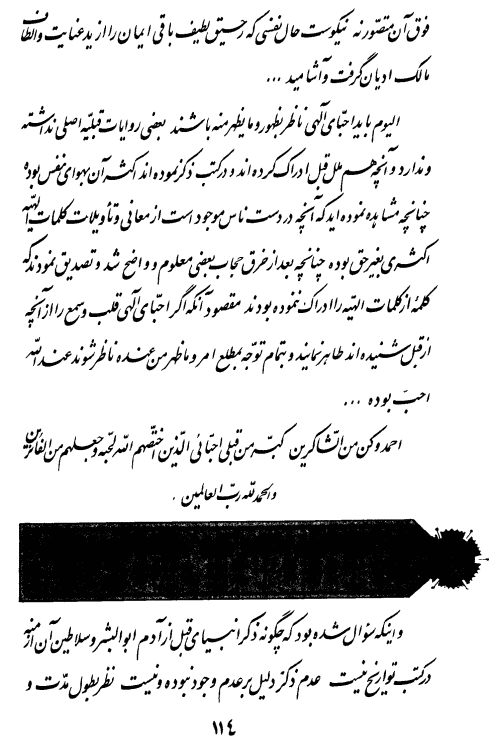 فوق آن متصوّر نه نیکوست حال نفسی که رحیق لطیف باقی ایمان را از ید عنایت و الطاف
مالک ادیان گرفت و آشامید ...
الیوم باید احبّای الهی ناظر بظهور و ما یظهر منه باشند بعضی روایات قبلیّه اصلی نداشته
و ندارد و آنچه هم ملل قبل ادراک کرده اند و در کتب ذکر نموده اند اکثر آن بهوای نفس بوده
چنانچه مشاهده نموده اید که آنچه در دست ناس موجود است از معانی و تأویلات کلمات الهیّه
اکثری بغیر حق بوده چنانچه بعد از خرق حجاب بعضی معلوم و واضح شد و تصدیق نمودند که
کلمهٔ از کلمات الهیّه را ادراک ننموده بودند مقصود آنکه اگر احبّای الهی قلب و سمع را از آنچه
از قبل شنیده اند طاهر نمایند و بتمام توجّه بمطلع امر و ما ظهر من عنده ناظر شوند عند الله
احبّ بوده ...
احمد و کن من الشّاکرین کبّر من قبلی احبّائی الّذین اختصّهم الله لحبّه و جعلهم من الفائزین
والحمد لله ربّ العالمین .
و اینکه سؤال شده بود که چگونه ذکر انبیای قبل از آدم ابوالبشر و سلاطین آن ازمنه
در کتب تواریخ نیست عدم ذکر دلیل بر عدم وجود نبوده و نیست نظر بطول مدّت و
١١٤